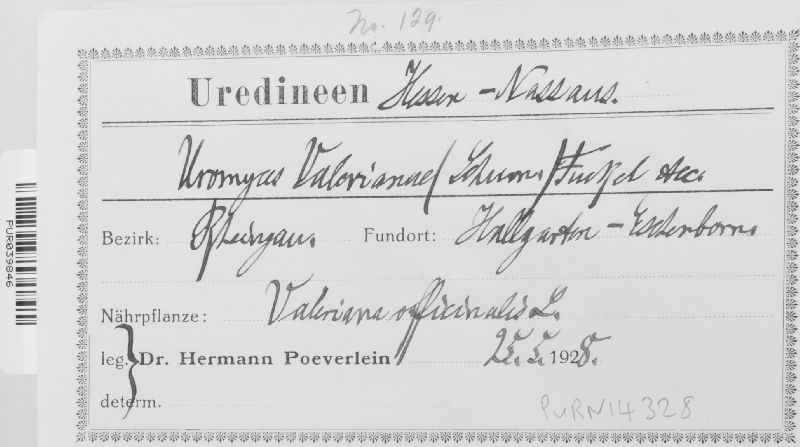 No. 129.
Uredineen Hessen-Nassaus.
Uromyces Valerianae (Schum.) Fuckel aec.
Bezirk: Rheingau. Fundort: Hallgarten – Eschenborn.
Nährpflanze: Valeriana officinalis L.
leg. Dr. Hermann Poeverlein 25. 5. 1928.
determ.
PURN14328
PUR039846